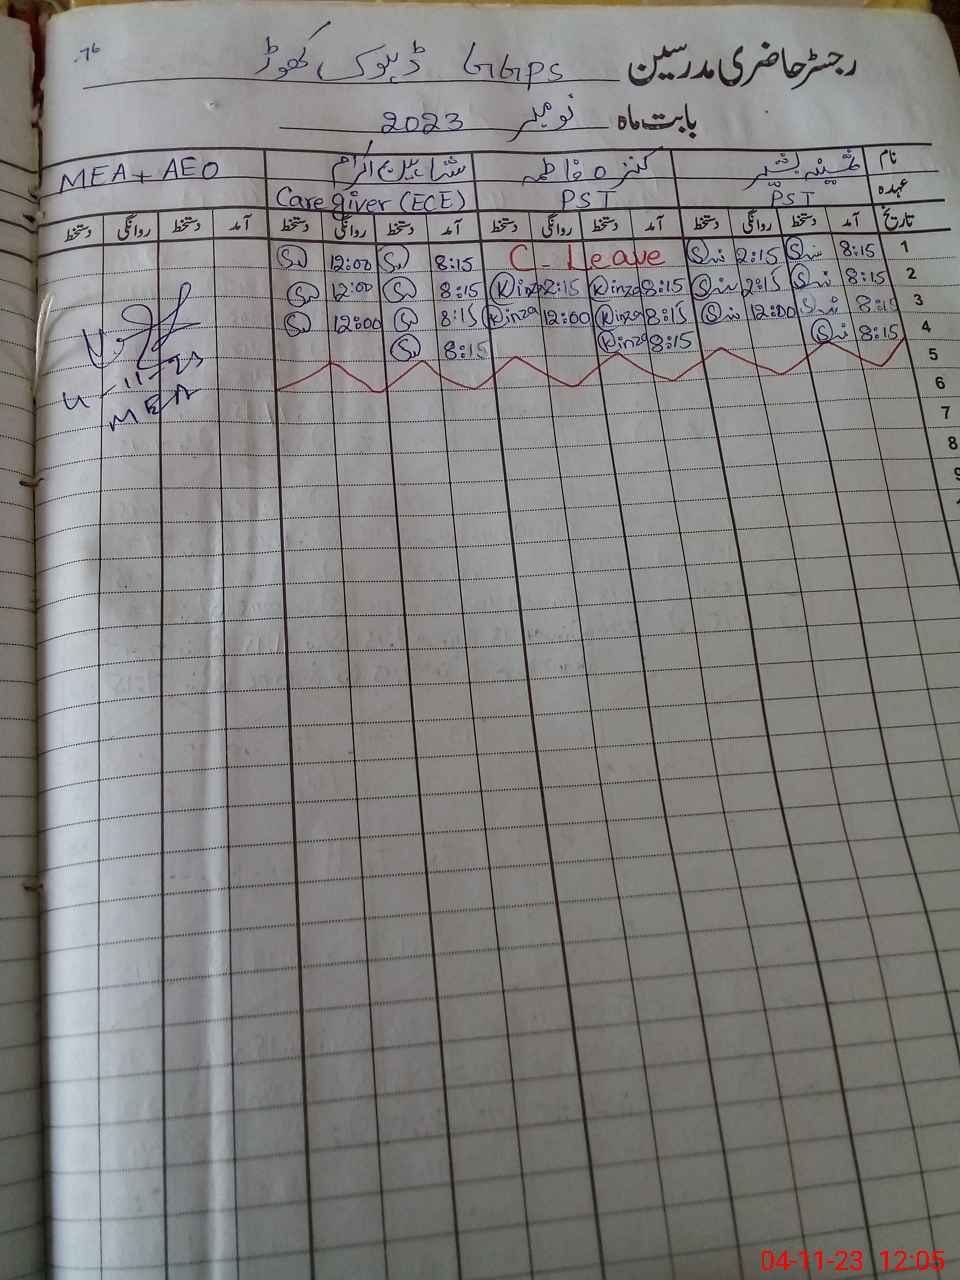 76
رجسٹر حاضری مدرسین GGPS ڈہوک کھوڑ
بابت ماہ نومبر 2023
نام ثمینہ بشیر کنزہ فاطمہ شاہین اکرام MEA + AEO
عہدہ PST PST Care giver (ECE)
تاریخ آمد دستخط روانگی دستخط آمد دستخط روانگی دستخط آمد دستخط روانگی دستخط آمد دستخط روانگی دستخط
1 8:15 2:15 C. Leave 8:15 12:00
2 8:15 2:15 8:15 Kinza 2:15 Kinza 8:15 12:00
3 8:15 12:00 8:15 Kinza 12:00 Kinza 8:15 12:00
4 8:15 8:15 Kinza 8:15
5
6
7
8
9
4-11-23
MEA
04-11-23 12:05